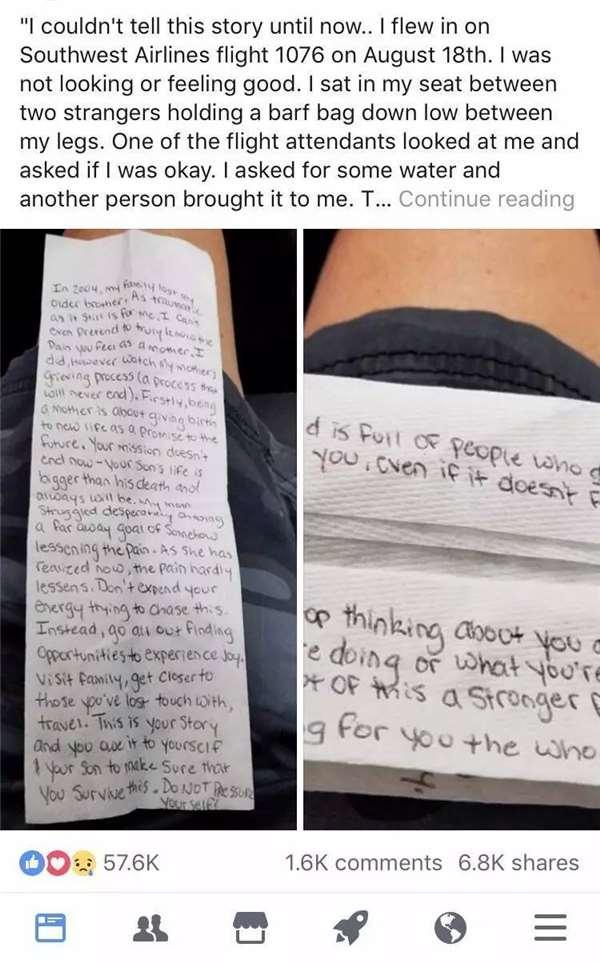 "I couldn't tell this story until now.. I flew in on
Southwest Airlines flight 1076 on August 18th. I was
not looking or feeling good. I sat in my seat between
two strangers holding a barf bag down low between
my legs. One of the flight attendants looked at me and
asked if I was okay. I asked for some water and
another person brought it to me. T... Continue reading
In 2004, my family lost my
older brother. As traumatic
as it still is for me, I can't
even pretend to truly know the
pain you feel as a mother. I
did, however watch my mother's
grieving process (a process that
will never end). Firstly, being
a mother is about giving birth
to new life as a promise to the
future. Your mission doesn't
end now - your son's life is
bigger than his death and
always will be. My mom
struggled desperately
a far away goal of somehow
lessening the pain. As she has
realized now, the pain hardly
lessens. Don't expend your
energy trying to chase this.
Instead, go all out finding
opportunities to experience joy.
Visit family, get closer to
those you've lost touch with,
travel. This is your story
and you owe it to yourself
& your son to make sure that
you survive this. Do NOT pressure
yourself
d is full of people who
you, even if it doesn't f
op thinking about you
e doing or what you're
t of this a stronger
g for you the who
57.6K
1.6K comments 6.8K shares